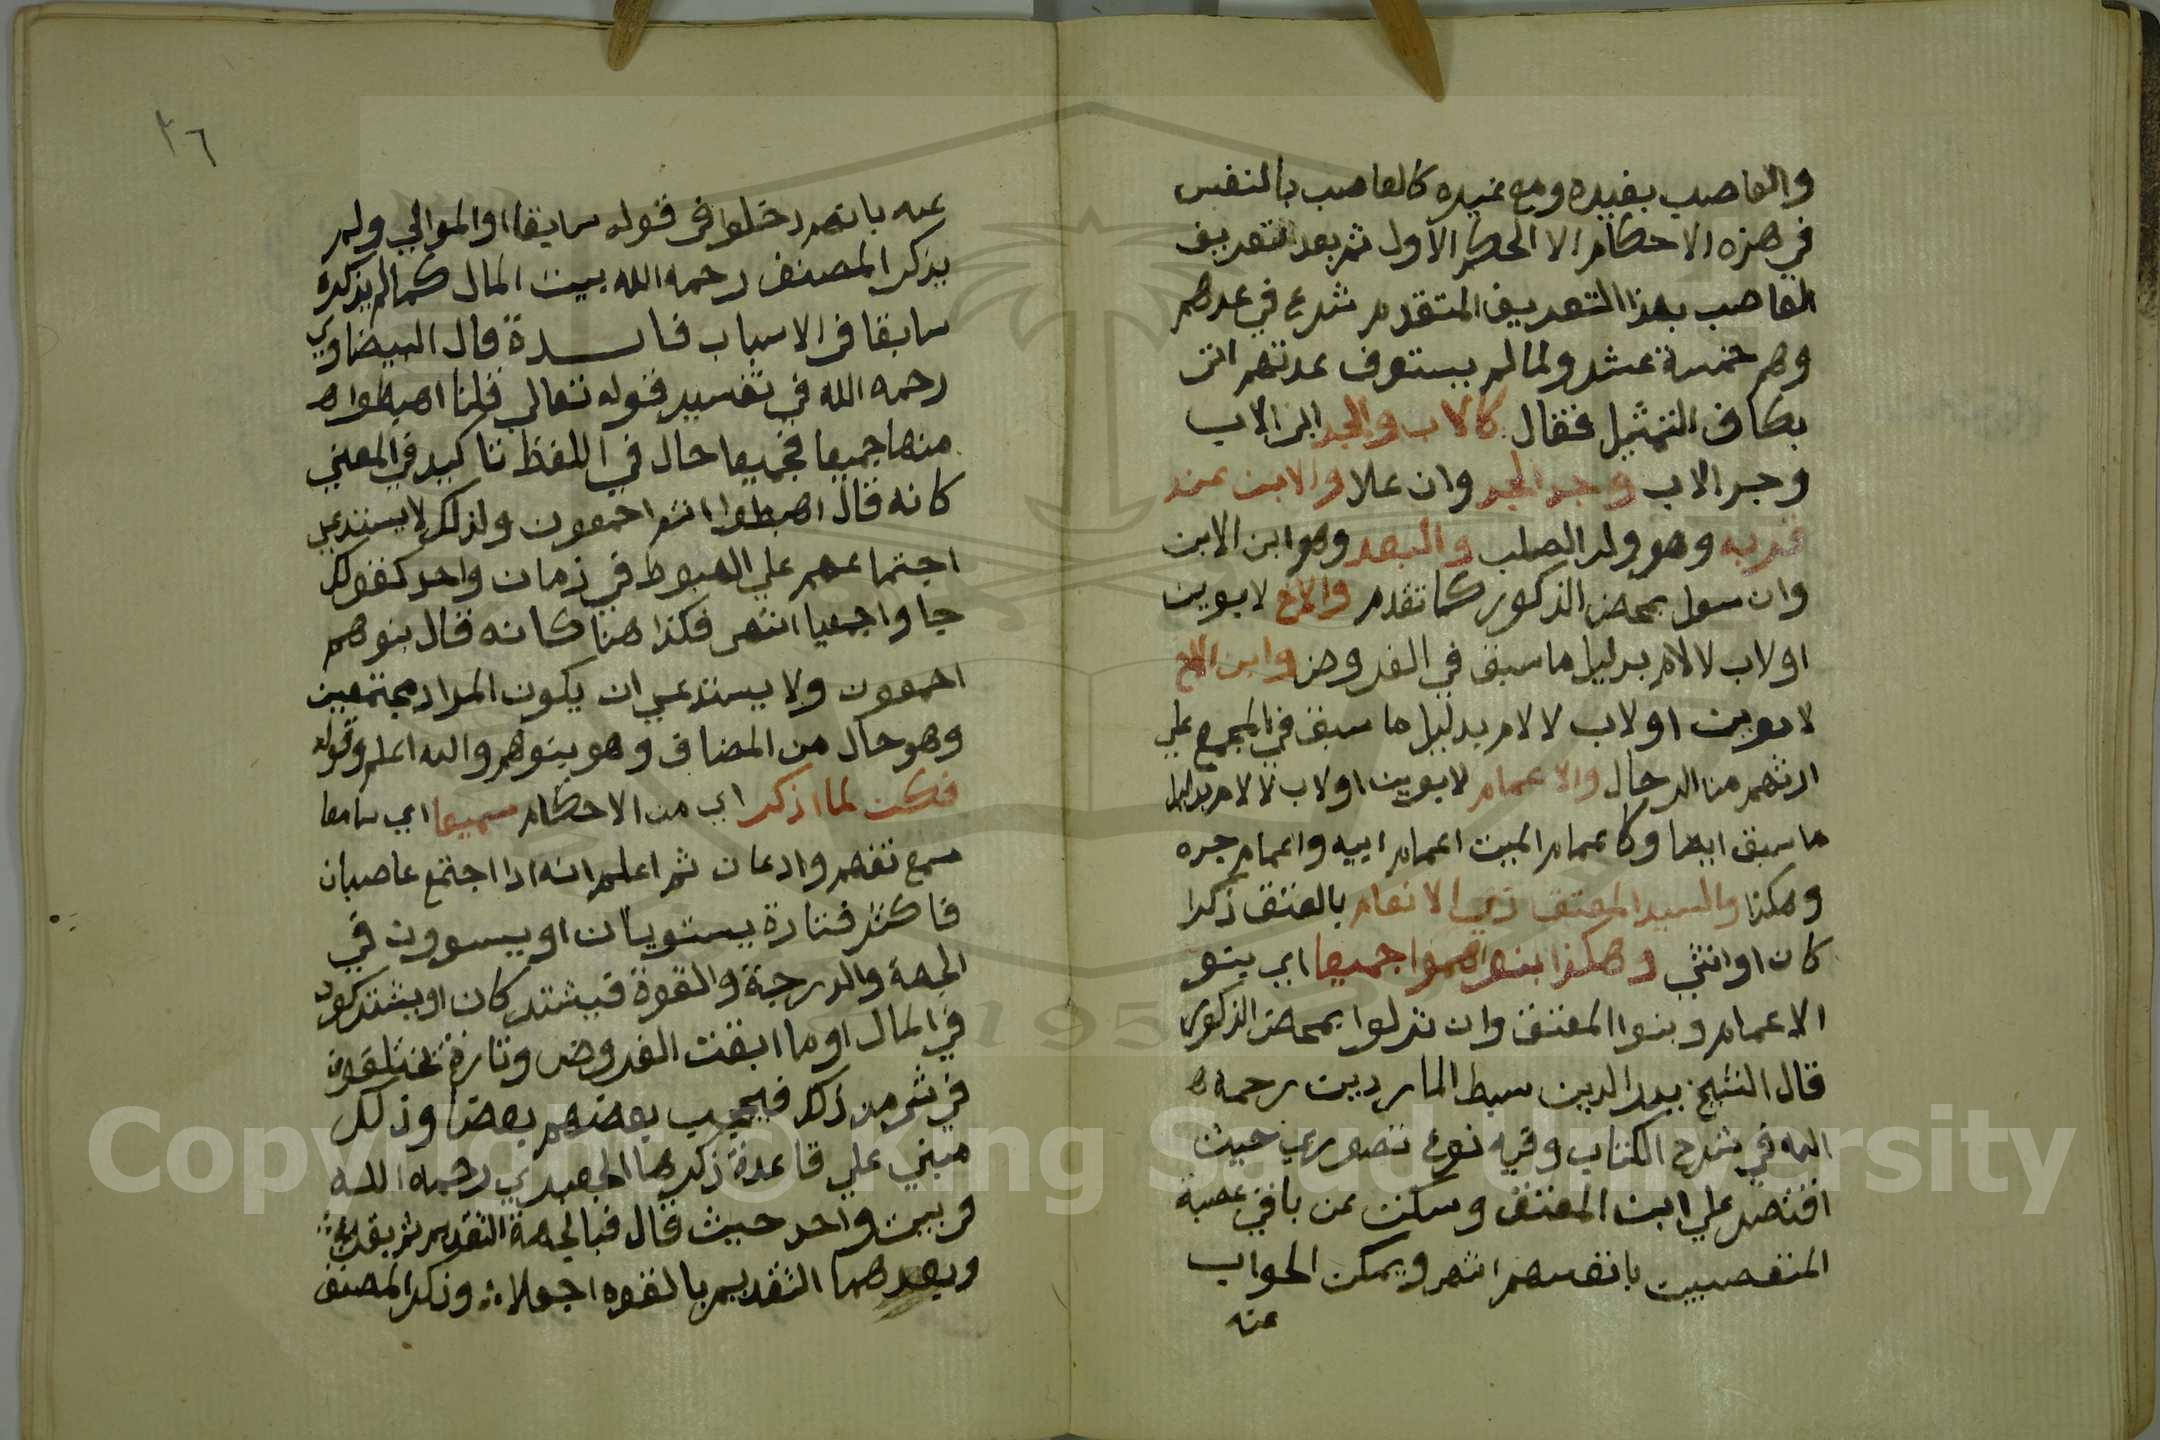 والعاصب بغيره ومع غيره كالعاصب بالنفس
في هذه الاحكام الا الحكم الاول ثم بعد التعريف
العاصب بهذا التعريف المتقدم شرع في عدهم
وهم خمسة عشر ولما لم يستوف عدتهم اتى
بكاف التمثيل فقال كالاب والجد ابي الاب
وجد الاب وجد الجد وان علا والابن عند
قربه وهو ولد الصلب والبعد وهو ابن الابن
وان سفل بمحض الذكور كما تقدم والاخ لابوين
او لاب لا لام بدليل ما سبق في الفروض وابن الاخ
لابوين او لاب لا لام بدليل ما سبق في المجمع علي
ارثهم من الرجال والاعمام لابوين او لاب لا لام بدليل
ما سبق ايضا وكاعمام الميت اعمام ابيه واعمام جده
وهكذا والسيد المعتق ذي الانعام بالعتق ذكرا
كان او انثي وهكذا بنوهموا جميعا اي بنو
الاعمام وبنوا المعتق وان نزلوا بمحض الذكور
قال الشيخ بدر الدين سبط المارديني رحمه
الله في شرح الكتاب وفيه نوع تصوري حيث
اقتصر علي ابن المعتق وسكت عن باقي عصبة
المتعصبين بانفسهم انتهى ويمكن الجواب
عنه
٣٦
عنه بانهم دخلوا في قوله سابقا او الموالي ولم
يذكر المصنف رحمه الله بيت المال كما لم يذكره
سابقا في الاسباب فائدة قال البيضاوي
رحمه الله في تفسير قوله تعالي قلنا اهبطوا
منها جميعا فجميعا حال في اللفظ تاكيد في المعني
كانه قال اهبطوا انتم اجمعون ولذلك لا يستدعي
اجتماعهم علي الهبوط في زمان واحد كقولك
جاوا جميعا انتهى فكذا هنا كانه قال بنوهم
اجمعون ولا يستدعي ان يكون المراد مجتمعين
وهو حال من المضاف وهو بنوهم والله اعلم وقوله
فكن لما اذكر اي من الاحكام سميعا اي سامعا
سمع تفهم واذعان ثم اعلم انه اذا اجتمع عاصبان
فاكثر فتارة يستويان او يستوون في
الجهة والدرجة والقوة فيشتركان او يشتركون
في المال او ما ابقت الفروض وتارة يختلفون
في شي من ذلك فيحجب بعضهم بعضا وذلك
مبني علي قاعدة ذكرها الجعبري رحمه الله
في بيت واحد حيث قال فبالجهة التقديم ثم بقربه
وبعدهما التقديم بالقوة اجعلا وذكر المصنف